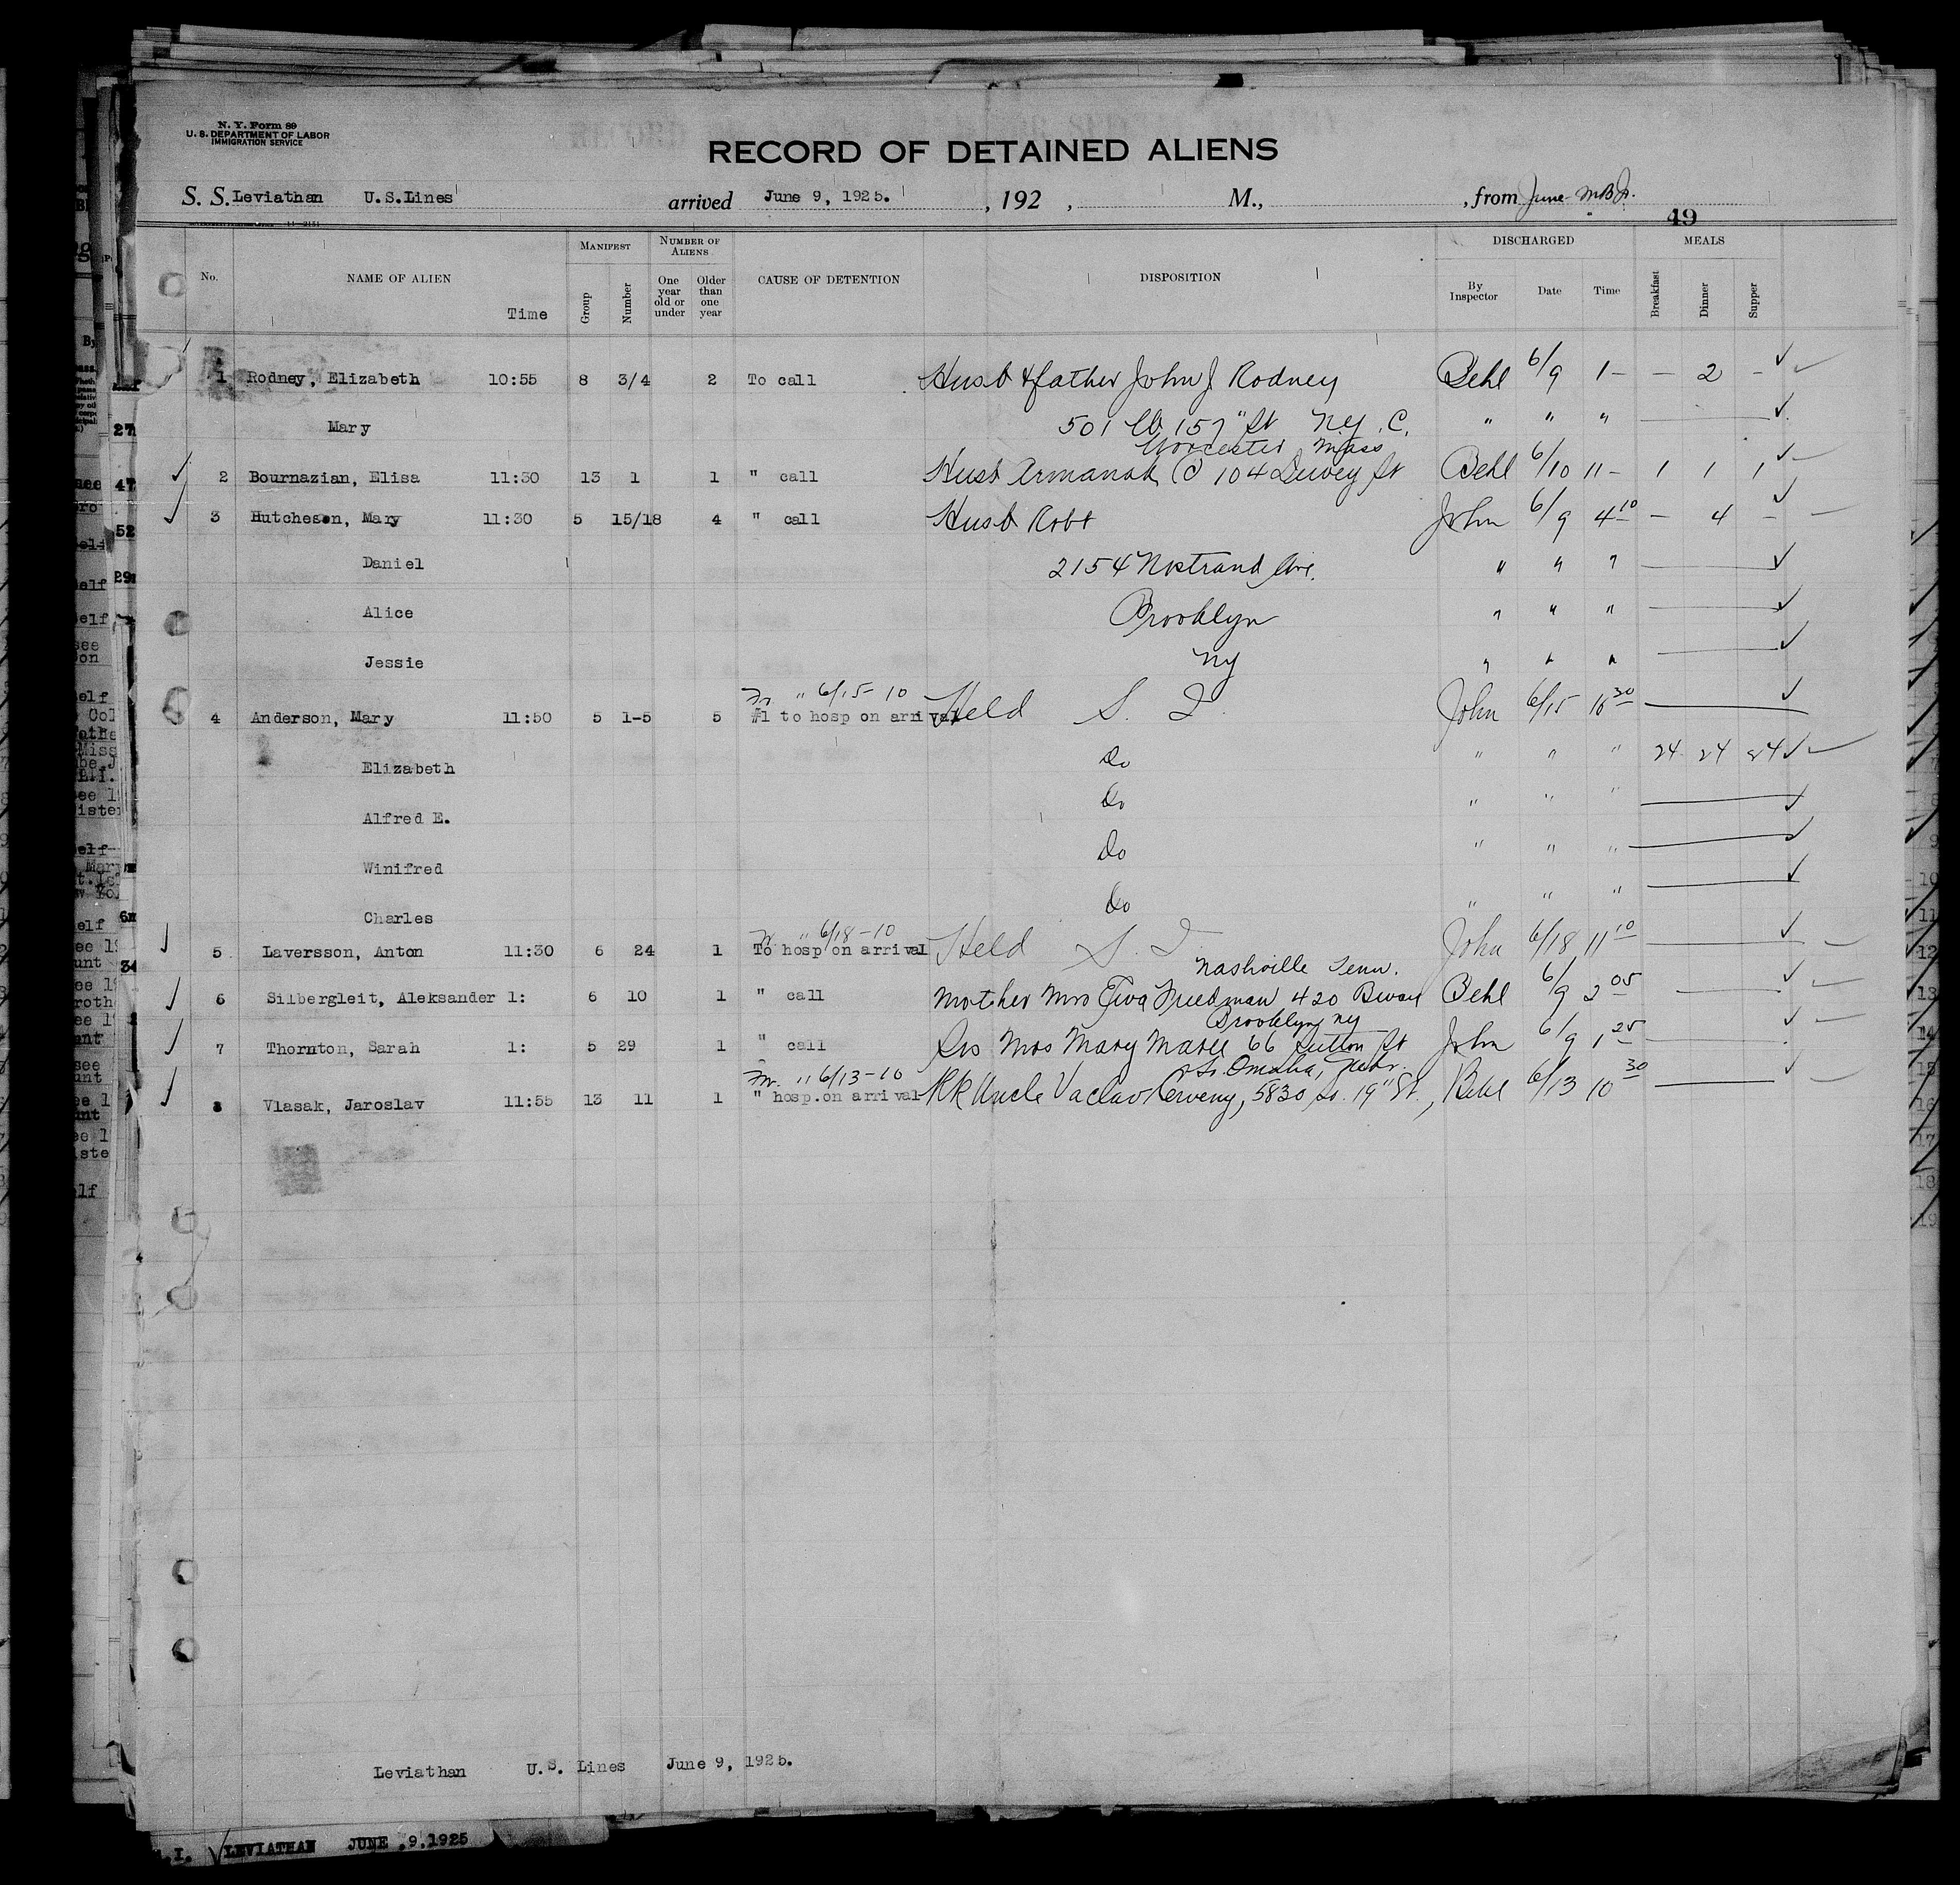 N. Y. Form 89
U. S. DEPARTMENT OF LABOR
IMMIGRATION SERVICE
RECORD OF DETAINED ALIENS
S. S. Leviathan U.S.Lines arrived June 9, 1925. , 192 , M., , from June
49
No. NAME OF ALIEN Time MANIFEST Group Number NUMBER OF ALIENS One year old or under Older than one year CAUSE OF DETENTION DISPOSITION DISCHARGED By Inspector Date Time MEALS Breakfast Dinner Supper
1 Rodney, Elizabeth 10:55 8 3/4 2 To call Husb & father John J Rodney Behl 6/9 1- - 2 -
Mary 501 W 157" St N.Y. C. " " "
Worcester Mass
2 Bournazian, Elisa 11:30 13 1 1 " call Husb Armanak 104 Dewey St Behl 6/10 11- 1 1 1
3 Hutcheson, Mary 11:30 5 15/18 4 " call Husb Robt John 6/9 4 10 - 4 -
Daniel 2154 Nostrand Ave. " " "
Alice Brooklyn " " "
Jessie NY " " "
" 6/15-10
4 Anderson, Mary 11:50 5 1-5 5 #1 to hosp on arrival Held S. I. John 6/15 10 30
Elizabeth Do " " " 24 24 24
Alfred E. Do " " "
Winifred Do " " "
Charles Do " " "
" 6/18-10
5 Laversson, Anton 11:30 6 24 1 To hosp on arrival Held S. I. John 6/18 11 10
Nashville Tenn.
6 Silbergleit, Aleksander 1: 6 10 1 " call Mother Mrs Eva Friedman 420 Behl 6/9 2 05
Brooklyn NY
7 Thornton, Sarah 1: 5 29 1 " call Sis Mrs Mary 66 Sutton St John 6/9 1 25
" 6/13-10 So. Omaha, Nebr.
8 Vlasak, Jaroslav 11:55 13 11 1 " hosp.on arrival RR Uncle Vaclav Cerveny, 5830 So. 19" St., Behl 6/13 10 30
Leviathan U.S. Lines June 9, 1925.
LEVIATHAN JUNE .9.1925